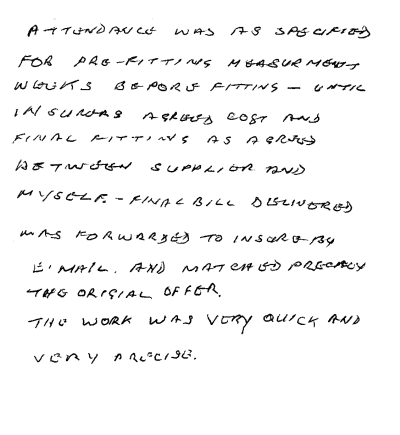 ATTENDANCE WAS AS SPECIFIED
FOR PRE-FITTING MEASURMENT
WEEKS BEFORE FITTING - UNTIL
INSURERS AGREED COST AND
FINAL FITTING AS AGREED
BETWEEN SUPPLIER AND
MYSELF. - FINAL BILL DELIVERED
WAS FORWARDED TO INSURE BY
E'MAIL. AND MATCHED
THE ORIGIAL OFFER.
THE WORK WAS VERY QUICK AND
VERY PRECISE.